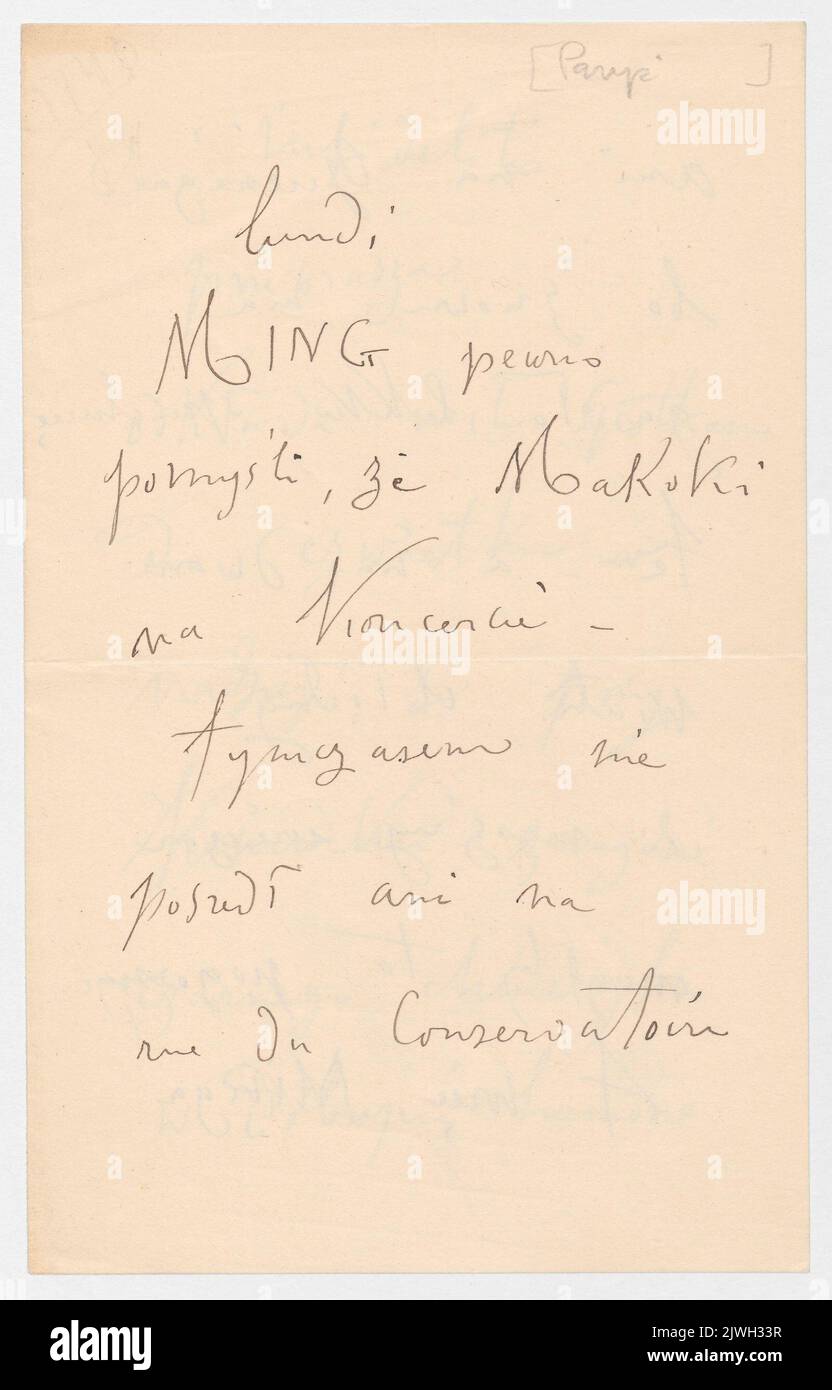 [Paryż ]
lundi
MING pewno
pomyśli, że Makoki
na Koncercie –
tymczasem nie
poszedł ani na
rue du Conservatoire
alamy
Image ID: 2JWH33R
www.alamy.com